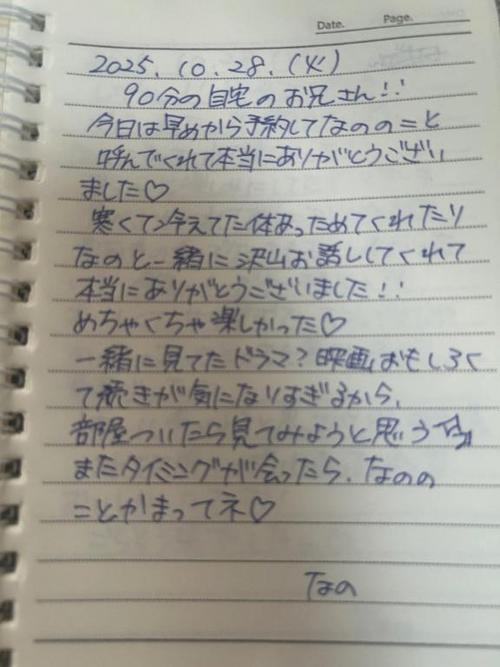 Date. Page.
2025. 10. 28. (火)
90分の自宅のお兄さん!!
今日は早めから予約してなののこと
呼んでくれて本当にありがとうござい
ました♡
寒くて冷えてた体あっためてくれたり
なのと一緒に沢山お話ししてくれて
本当にありがとうございました!!
めちゃくちゃ楽しかった♡
一緒に見てたドラマ?映画おもしろく
て続きが気になりすぎるから、
部屋ついたら見てみようと思う
またタイミングが会ったら、なのの
ことかまってネ♡
なの